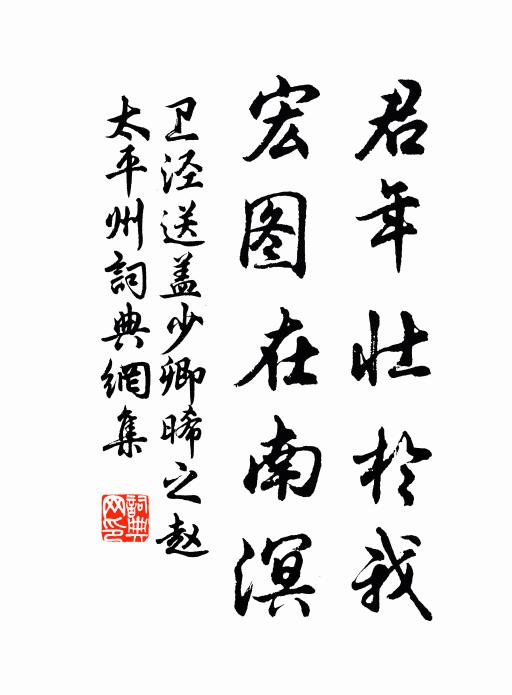 君年壮於我
宏图在南溟
卫泾送盖少卿晞之赵
太平州詞典網集
詞典网印